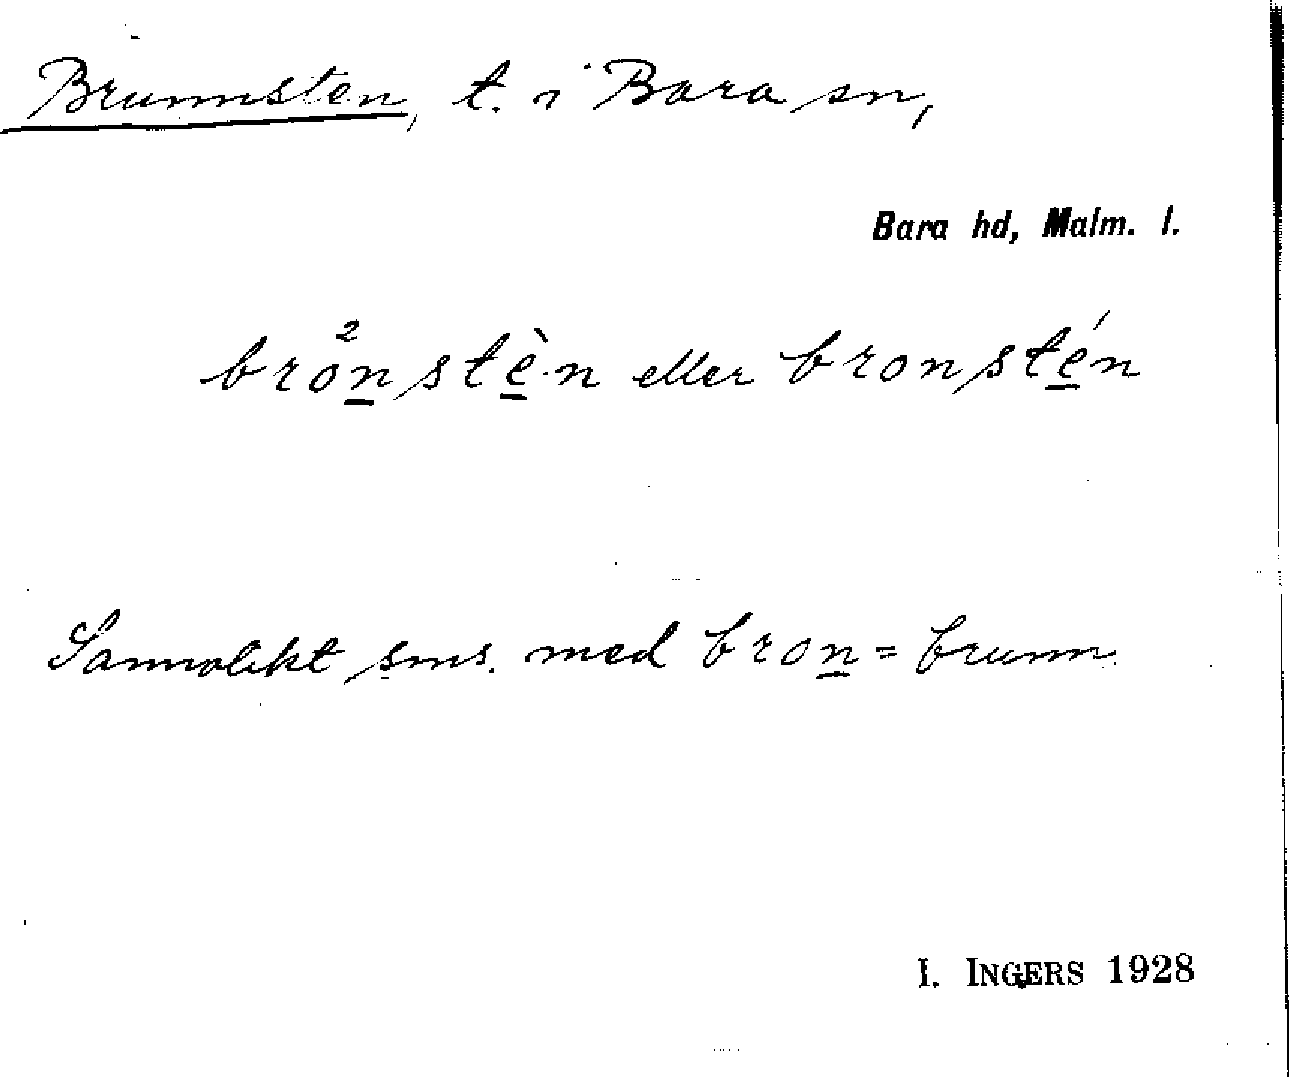 Brunnsten, t. i Bara sn,
Bara hd, Malm. l.
bro²nstè.n eller bronstén
Sannolikt sms. med bron = brunn.
I. INGERS 1928